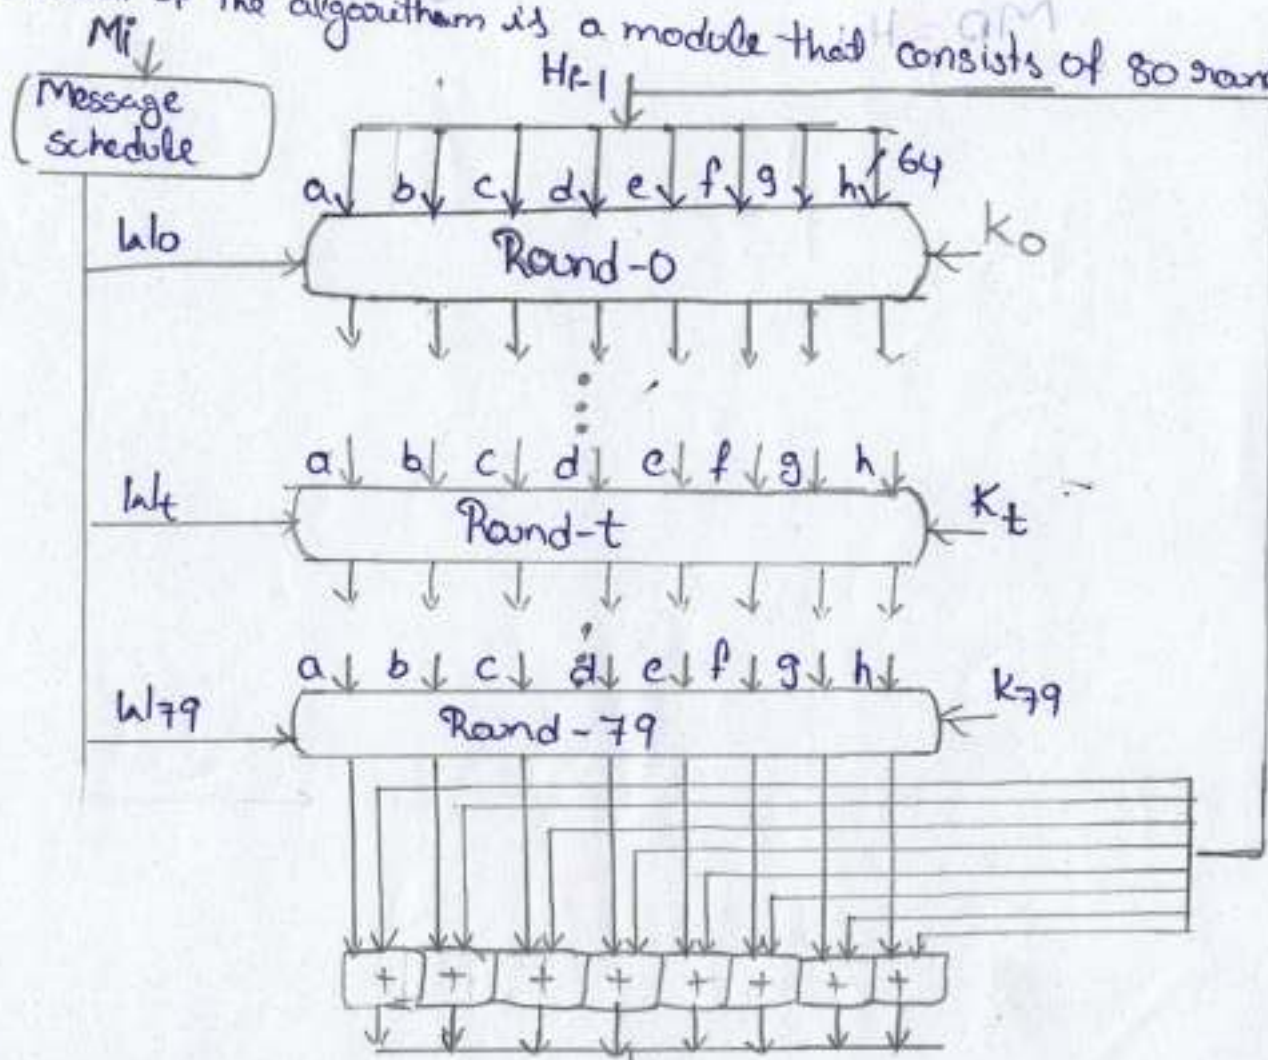 the algorithm is a module that consists of 80
Mi
Hi-1
Message
schedule
a b c d e f g h 64
W0 Round-0 K0
a b c d e f g h
Wt Round-t Kt
a b c d e f g h
W79 Round-79 K79
+ + + + + + + +